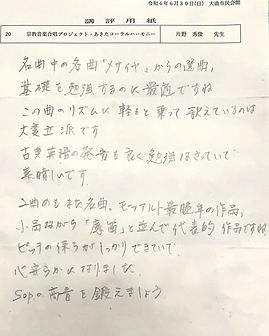 令和6年6月30日(日) 大曲市民会館
講評用紙
20 宗教音楽合唱プロジェクト・あきたコーラルハーモニー 片野 秀俊 先生
名曲中の名曲「メサイヤ」からの選曲,
基礎を勉強するのに最適ですね
この曲のリズムに軽もと乗って歌えているのは
大変立派です
古典英語の発音も良く勉強なさっていて
素晴しいです.
2曲めもまた名曲, モーツアルト最晩年の作品,
小品ながら「魔笛」と並んで代表的作品ですね
ピッチの保ちがしっかりできていて
心安らかになりました
Sopの高音を鍛えましょう